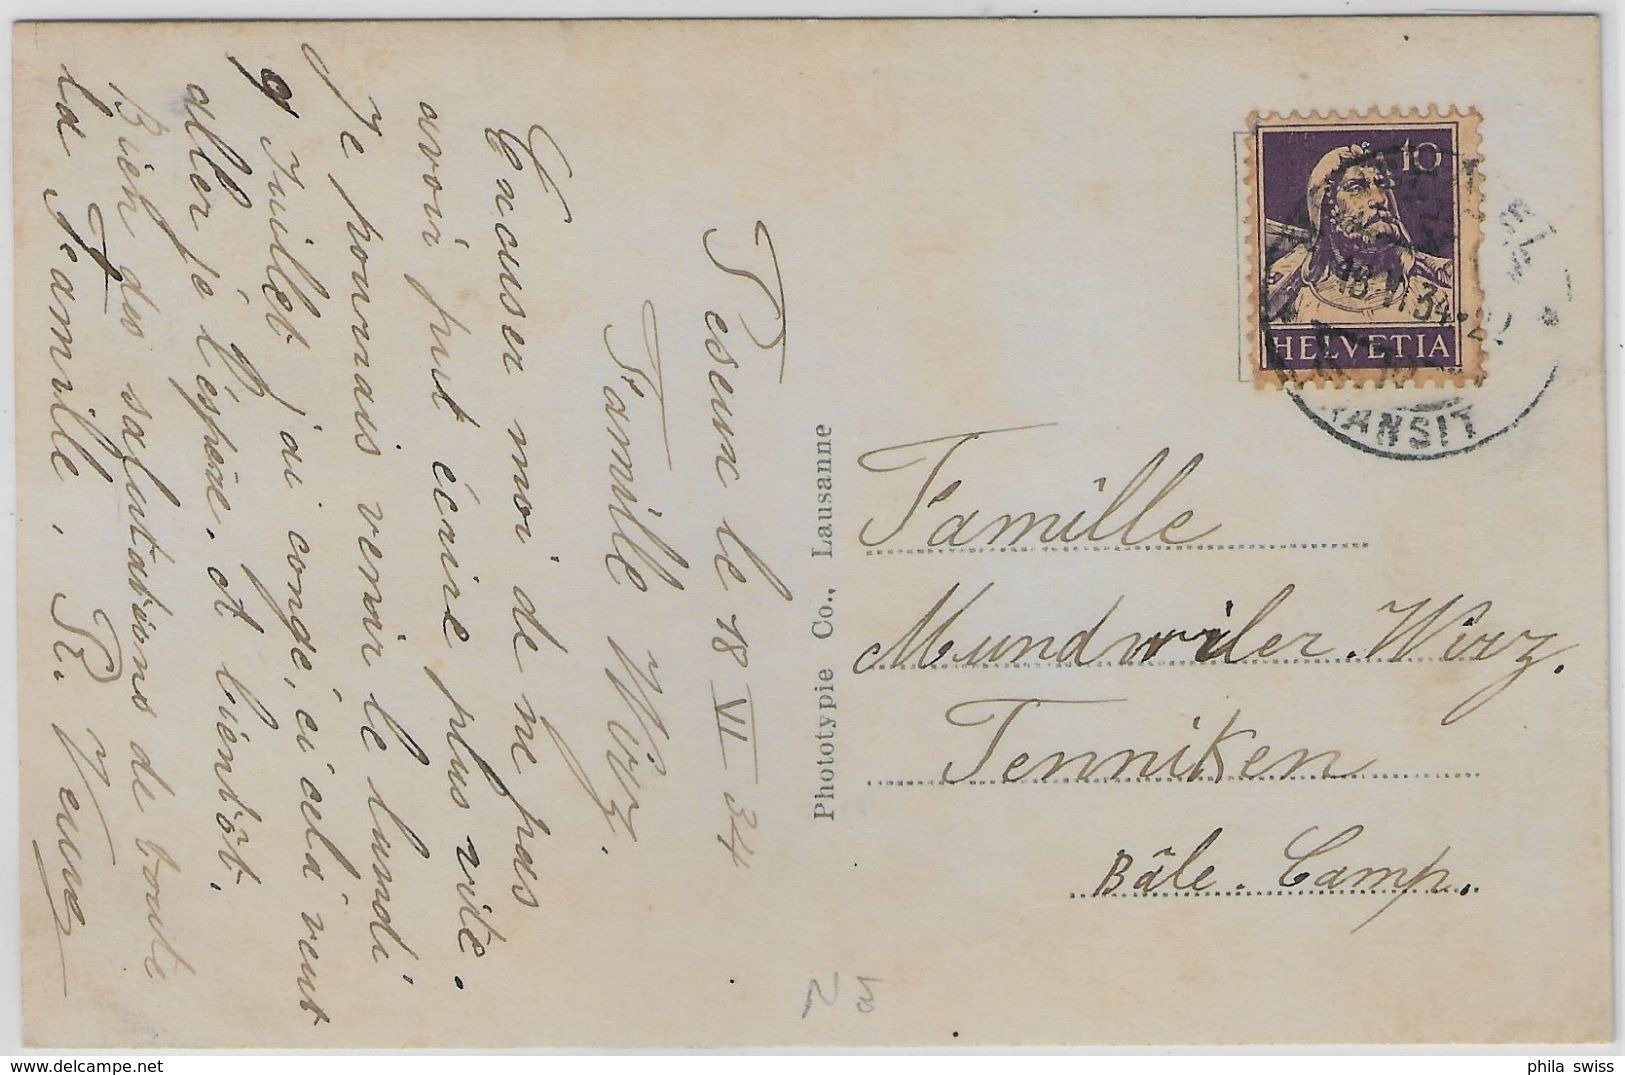 Peseux le 18 VI 34
Famille Wirz.
Excuser moi de ne pas
avoir put écrire plus vite.
Je pourrais venir le lundi
9 Juillet j'ai congé, ci cela veut
aller je l'éspère. A bientôt.
Bien des salutations de toute
la Famille.
10
HELVETIA
18.VI.34
TRANSIT
Famille
Mundwiler. Wirz.
Tenniken
Bâle. Camp.
Phototypie Co., Lausanne
phila swiss